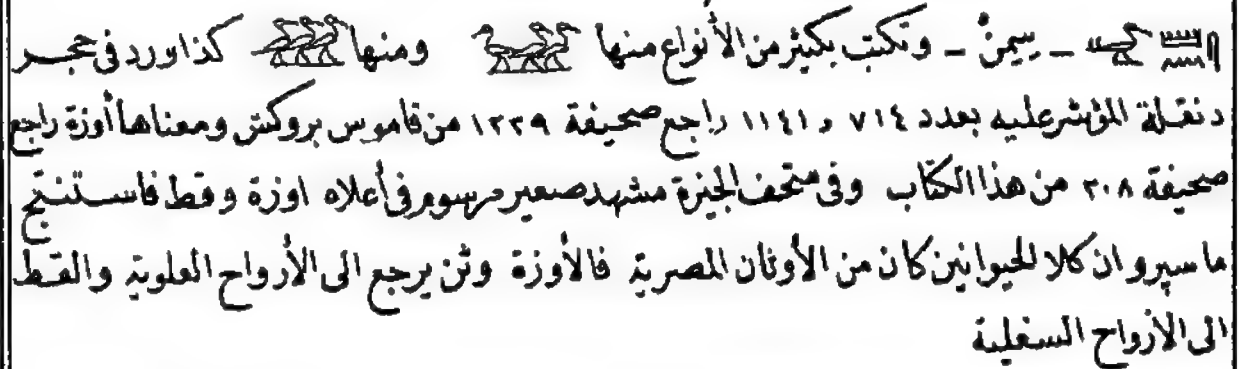 – سِيمِنْ – وتكتب بكثير من الأنواع منها ومنها كذا ورد فى حجر
دنقلة المؤشر عليه بعدد ٧١٤ و ١١٤١ راجع صحيفة ١٢٣٩ من قاموس بروكش ومعناها أوزة راجع
صحيفة ٢٠٨ من هذا الكتاب وفى متحف الجيزة مشهد صغير مرسوم فى أعلاه اوزة وقط فاستنتج
ماسبرو ان كلا للحيوانين كان من الأوثان المصرية فالأوزة وثن يرجع الى الأرواح العلوية والقط
الى الأرواح السفلية